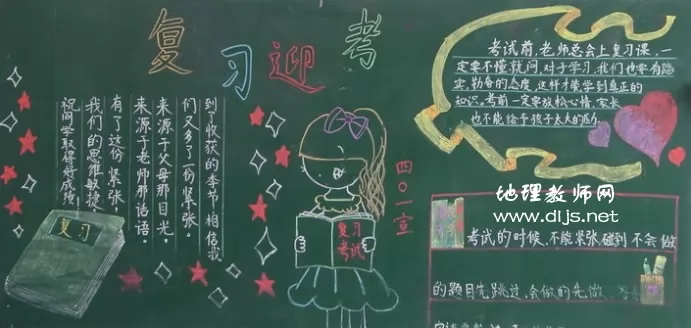 复习迎考
到了收获的季节，相信我
们又多了一份紧张。
来源于父母那目光。
来源于老师那话语。
有了这份紧张
我们的思维敏捷。
祝同学取得好成绩
复习
复习
考试
四〇一宣
考试前，老师总会上复习课，一
定要不懂就问，对于学习，我们也要有踏
实，勤奋的态度，这样才能学到真正的
知识。考前一定要放松心情，家长
也不能给予孩子太大的压力。
地理教师网
www.dljs.net
考试的时候，不能紧张碰到不会做
的题目先跳过，会做的先做